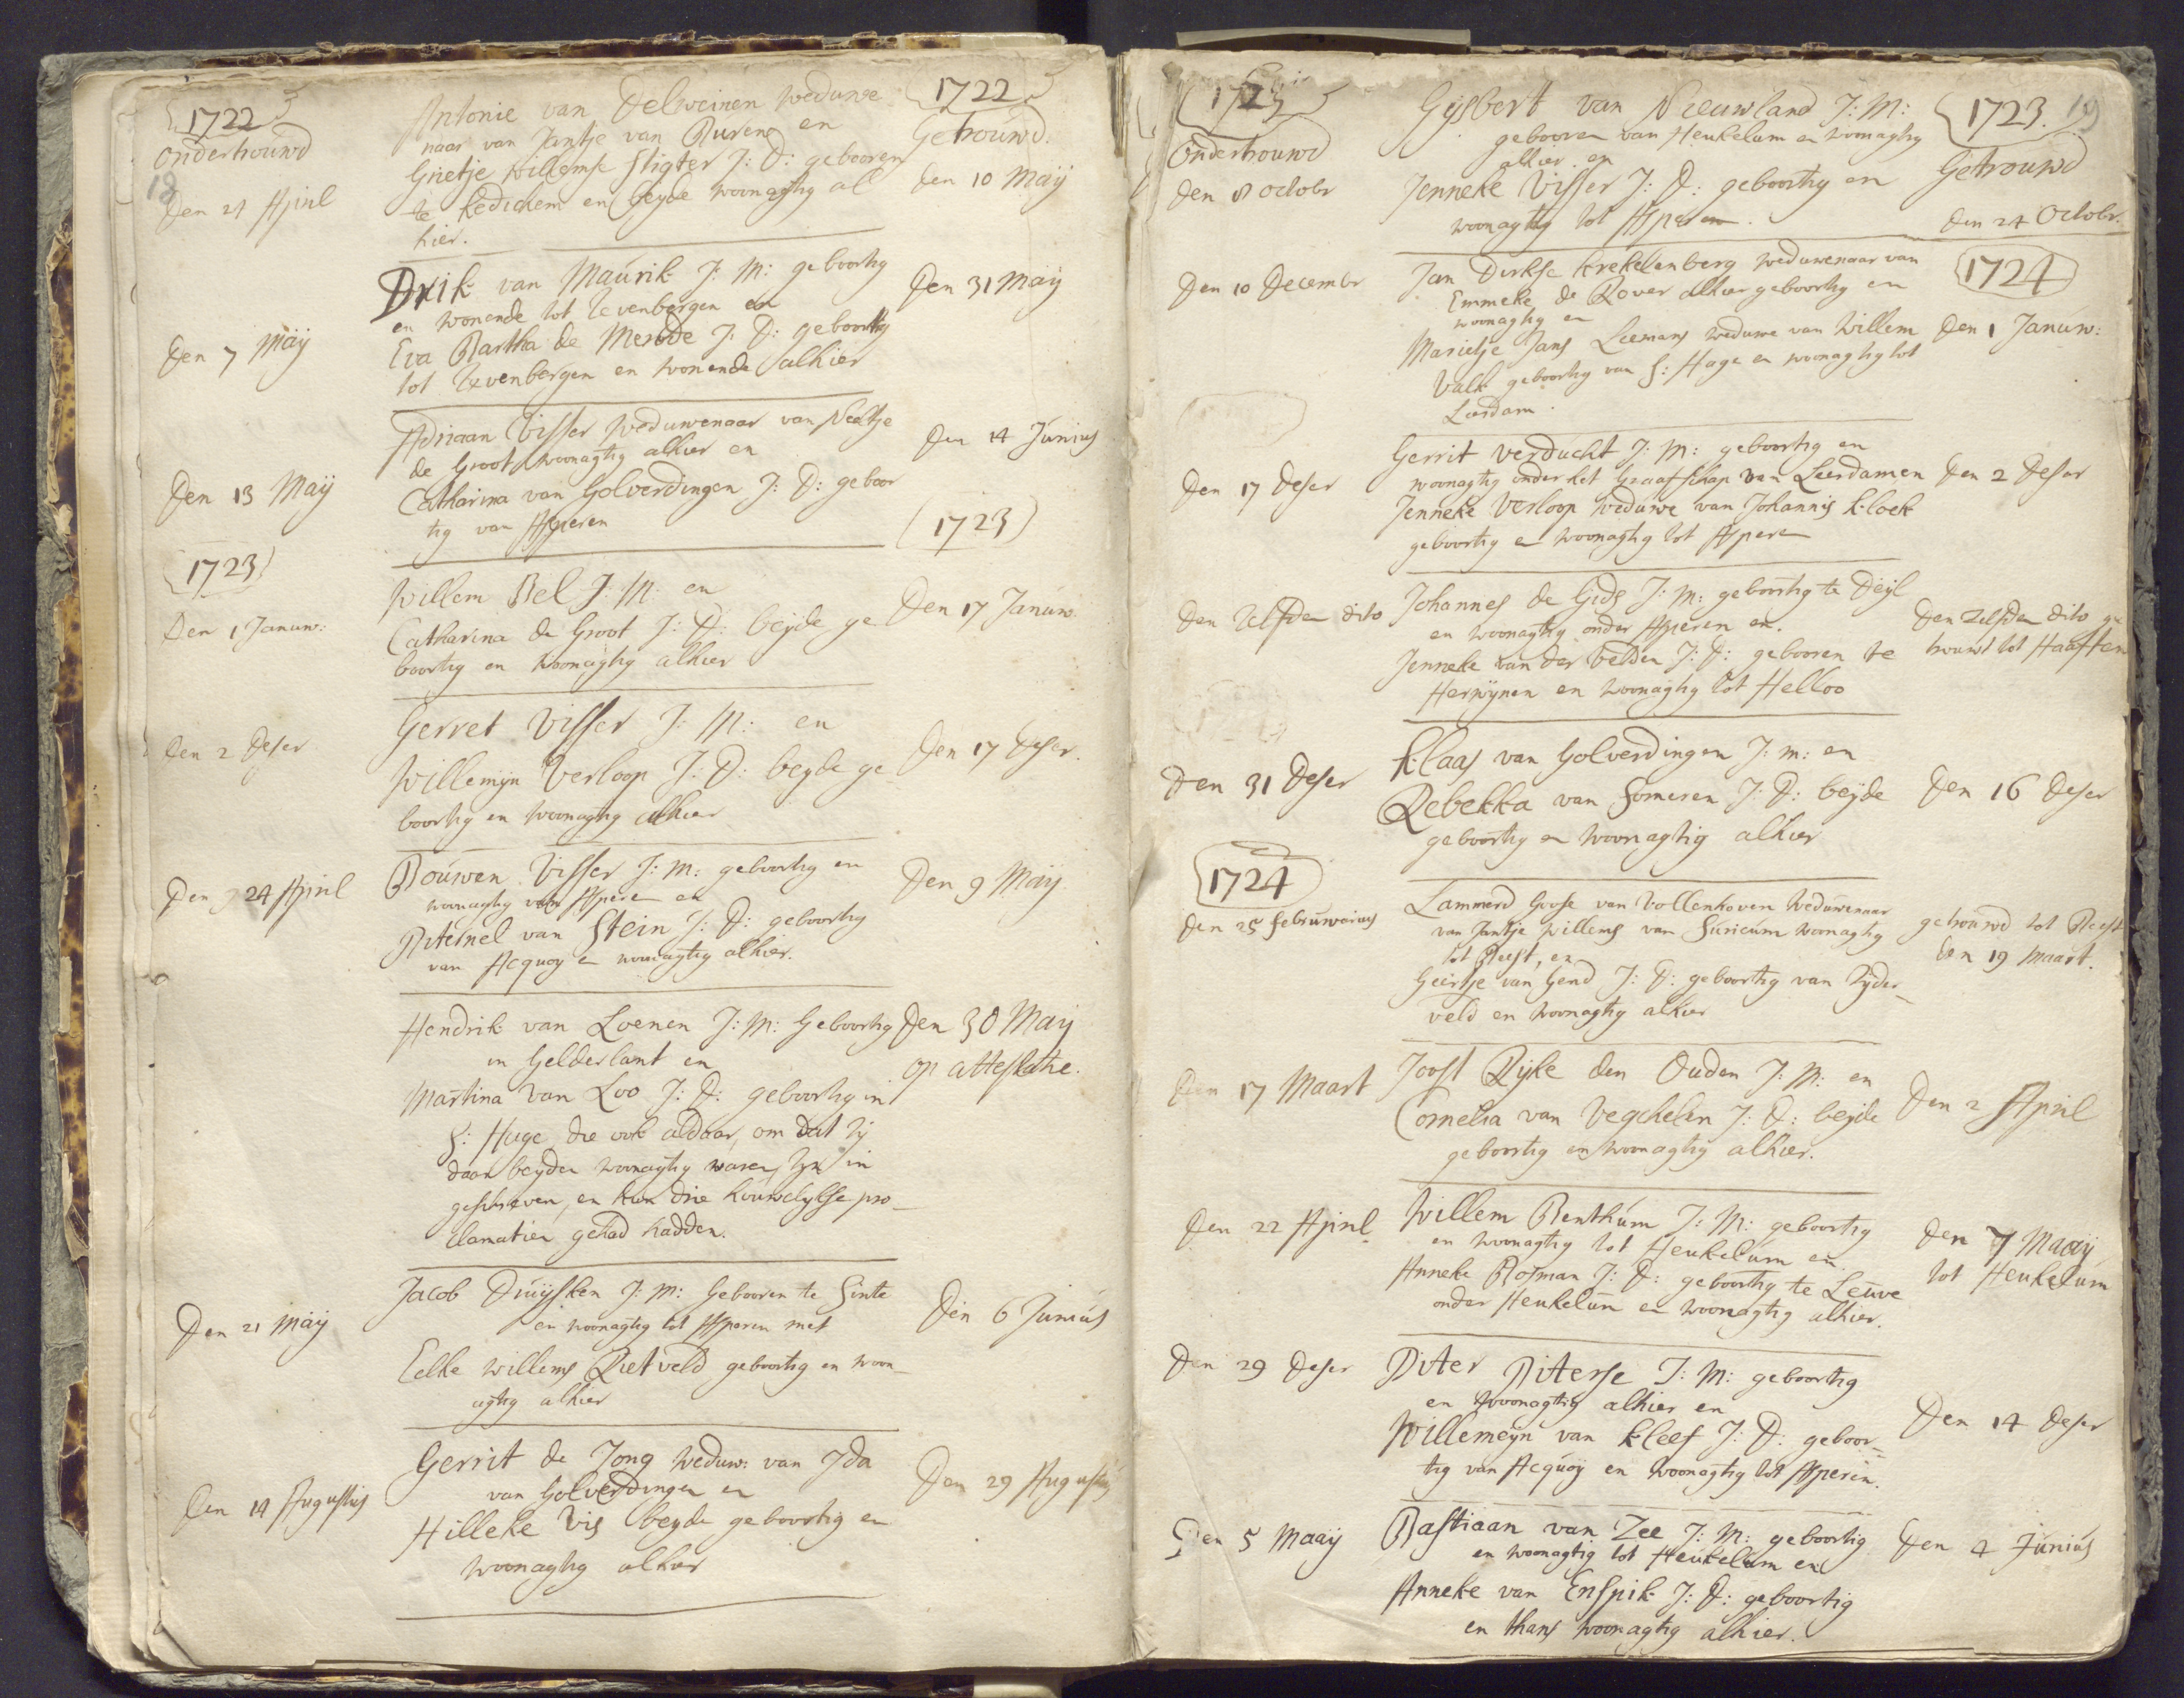 1722
onderhouwd
18
Den 21 April
Antonie van Delweinen Weduwe
naar van Jantje van Buren en
Grietje Willemse Sligter J: D: gebooren
te Kedichem en beyde woonagtig al
hier.
1722
Getrouwd.
den 10 Maÿ
Den 7 Maÿ
Drik van Maurik J: M: geboortig
en wonende tot Zevenbergen en
Eva Bartha de Merode J: D: geboortig
tot Zevenbergen en wonende alhier
Den 31 Maÿ
Den 13 Maÿ
Adriaan Visser Weduwenaar van Neeltje
de Groot woonagtig alhier en
Catharina van Golverdingen J: D: geboor
tig van Asperen
Den 14 Junius
1723
Den 1 Januw:
Willem Bel J: M: en
Catharina de Groot J: D: beÿde ge
boortig en woonagtig alhier
1723
Den 17 Januw.
den 2 deser
Gerret Visser J: M: en
Willemÿn Verloop J: D: beyde ge
boortig en woonagtig alhier
Den 17 deser.
Den 24 April
Bouwen Visser J: M: geboortig en
woonagtig van Asperen en
Piternel van Stein J: D: geboortig
van Acquoy en woonagtig alhier.
Den 9 Maÿ
Hendrik van Loenen J: M: Geboortig
in Gelderlant en
Martina van Loo J: D: geboortig in
S: Hage, die ook aldaar, om dat zÿ
daar beyden woonagtig waren, zyn in
geschreven, en hun drie houwelykse pro-
clamatien gehad hadden.
Den 30 Maÿ
op attestatie.
Den 21 Maÿ
Jacob Druÿsken J: M: Gebooren te Sinte
en woonagtig tot Asperen met
Eelke Willems Rietveld geboortig en woon-
agtig alhier
Den 6 Junius
Den 14 Augustus
Gerrit de Jong Weduw: van Ida
van Golverdingen en
Hilleke Vis beyde geboortig en
woonagtig alhier
Den 29 Augustus
1723
Onderhouwd
den 8 octobr
Gysbert van Nieuwland J: M:
gebooren van Heukelum en woonagtig
alhier en
Jenneke Visser J: D: geboortig en
woonagtig tot Asperen.
1723.
19
Getrouwd
den 24 Octobr.
Den 10 Decembr
Jan Dirkse Krekelenberg Weduwenaar van
Emmeke de Rover alhier geboortig en
woonagtig en
Marietje Jans Leemans Weduwe van Willem
Valk geboortig van S: Hage en woonagtig tot
Leerdam.
1724
Den 1 Januw:
Den 17 Deser
Gerrit Verducht J: M: geboortig en
woonagtig onder het Graafschap van Leerdam en
Jenneke Verloop Weduwe van Johannis Kloek
geboortig en woonagtig tot Asperen
Den 2 Deser
Den Zelfden dito
Johannes de Gids J: M: geboortig te Deÿl
en woonagtig onder Asperen en.
Jenneke van der Velden J: D: gebooren te
Herwÿnen en woonagtig tot Helloo
Den Zelfden dito ge
trouwt tot Haaften
Den 31 Deser
Klaas van Golverdingen J: m: en
Rebekka van Someren J: D: beÿde
geboortig en woonagtig alhier
Den 16 Deser
1724
Den 25 Februwarius
Lammerd Goose van Vollenhoven Weduwenaar
van Jantje Willems van Suricum woonagtig
tot Beest, en
Geertje van Gend J: D: geboortig van Zyder-
veld en woonagtig alhier
getrouwd tot Beest
den 19 Maart.
Den 17 Maart
Joost Ryke den Ouden J: M: en
Cornelia van Vegchelen J: D: beÿde
geboortig en woonagtig alhier.
Den 2 April
Den 22 April
Willem Benthum J: M: geboortig
en woonagtig tot Heukelum en.
Anneke Bosman J: D: geboortig te Leuve
onder Heukelum en woonagtig alhier.
Den 7 Maaÿ
tot Heukelum
Den 29 Deser
Piter Piterse J: M: geboortig
en woonagtig alhier en
Willemeyn van Kleef J: D: geboor-
tig van Acquoÿ en woonagtig tot Asperen.
Den 14 Deser
Den 5 Maaÿ
Bastiaan van Zee J: M: geboortig
en woonagtig tot Heukelum en
Anneke van Enspik J: D: geboortig
en thans woonagtig alhier.
Den 4 Junius